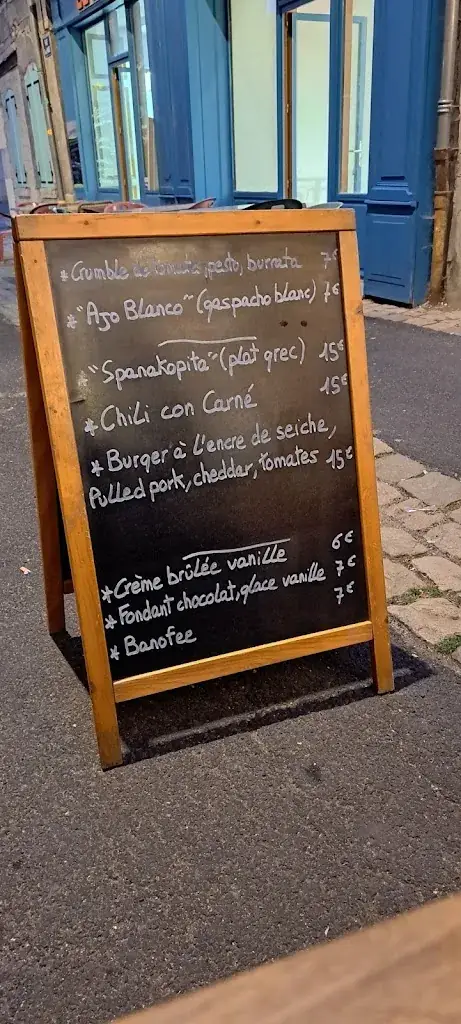 * Crumble de tomates, pesto, burrata 7€
* "Ajo Blanco" (gaspacho blanc) 7€
* "Spanakopita" (plat grec) 15€
* Chili con Carné 15€
* Burger à l'encre de seiche,
Pulled pork, cheddar, tomates 15€
* Crème brûlée vanille 6€
* Fondant chocolat, glace vanille 7€
* Banofee 7€